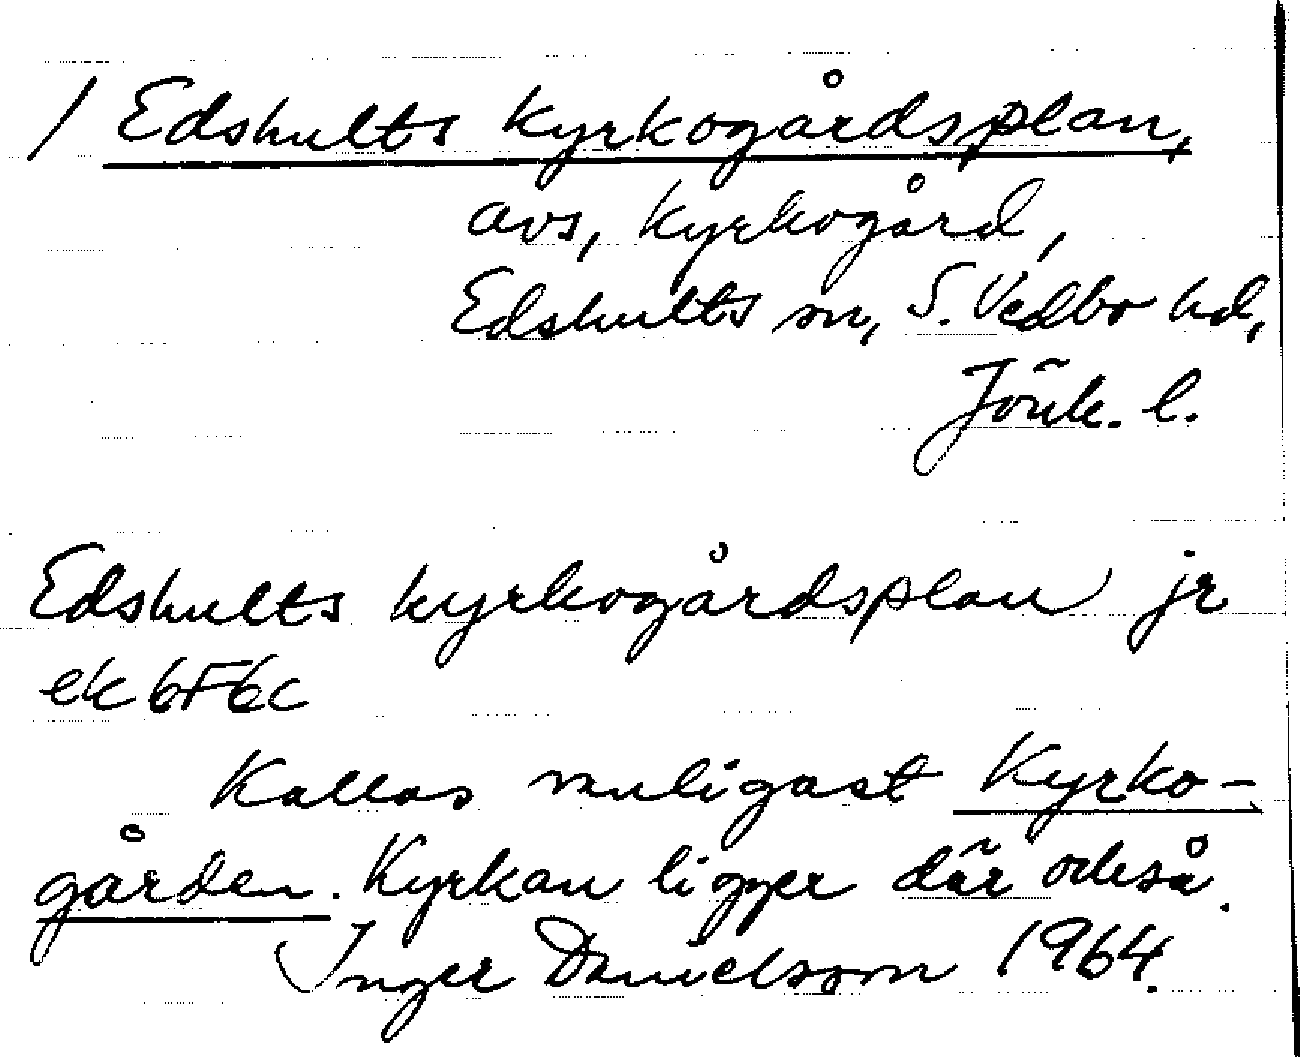 / Edshults kyrkogårdsplan,
avs, kyrkogård,
Edshults sn, S. Vedbo hd,
Jönk. l.
Edshults kyrkogårdsplan jr
ek 6F6c
Kallas vanligast Kyrko-
gården. Kyrkan ligger där också.
Inger Danielsson 1964.